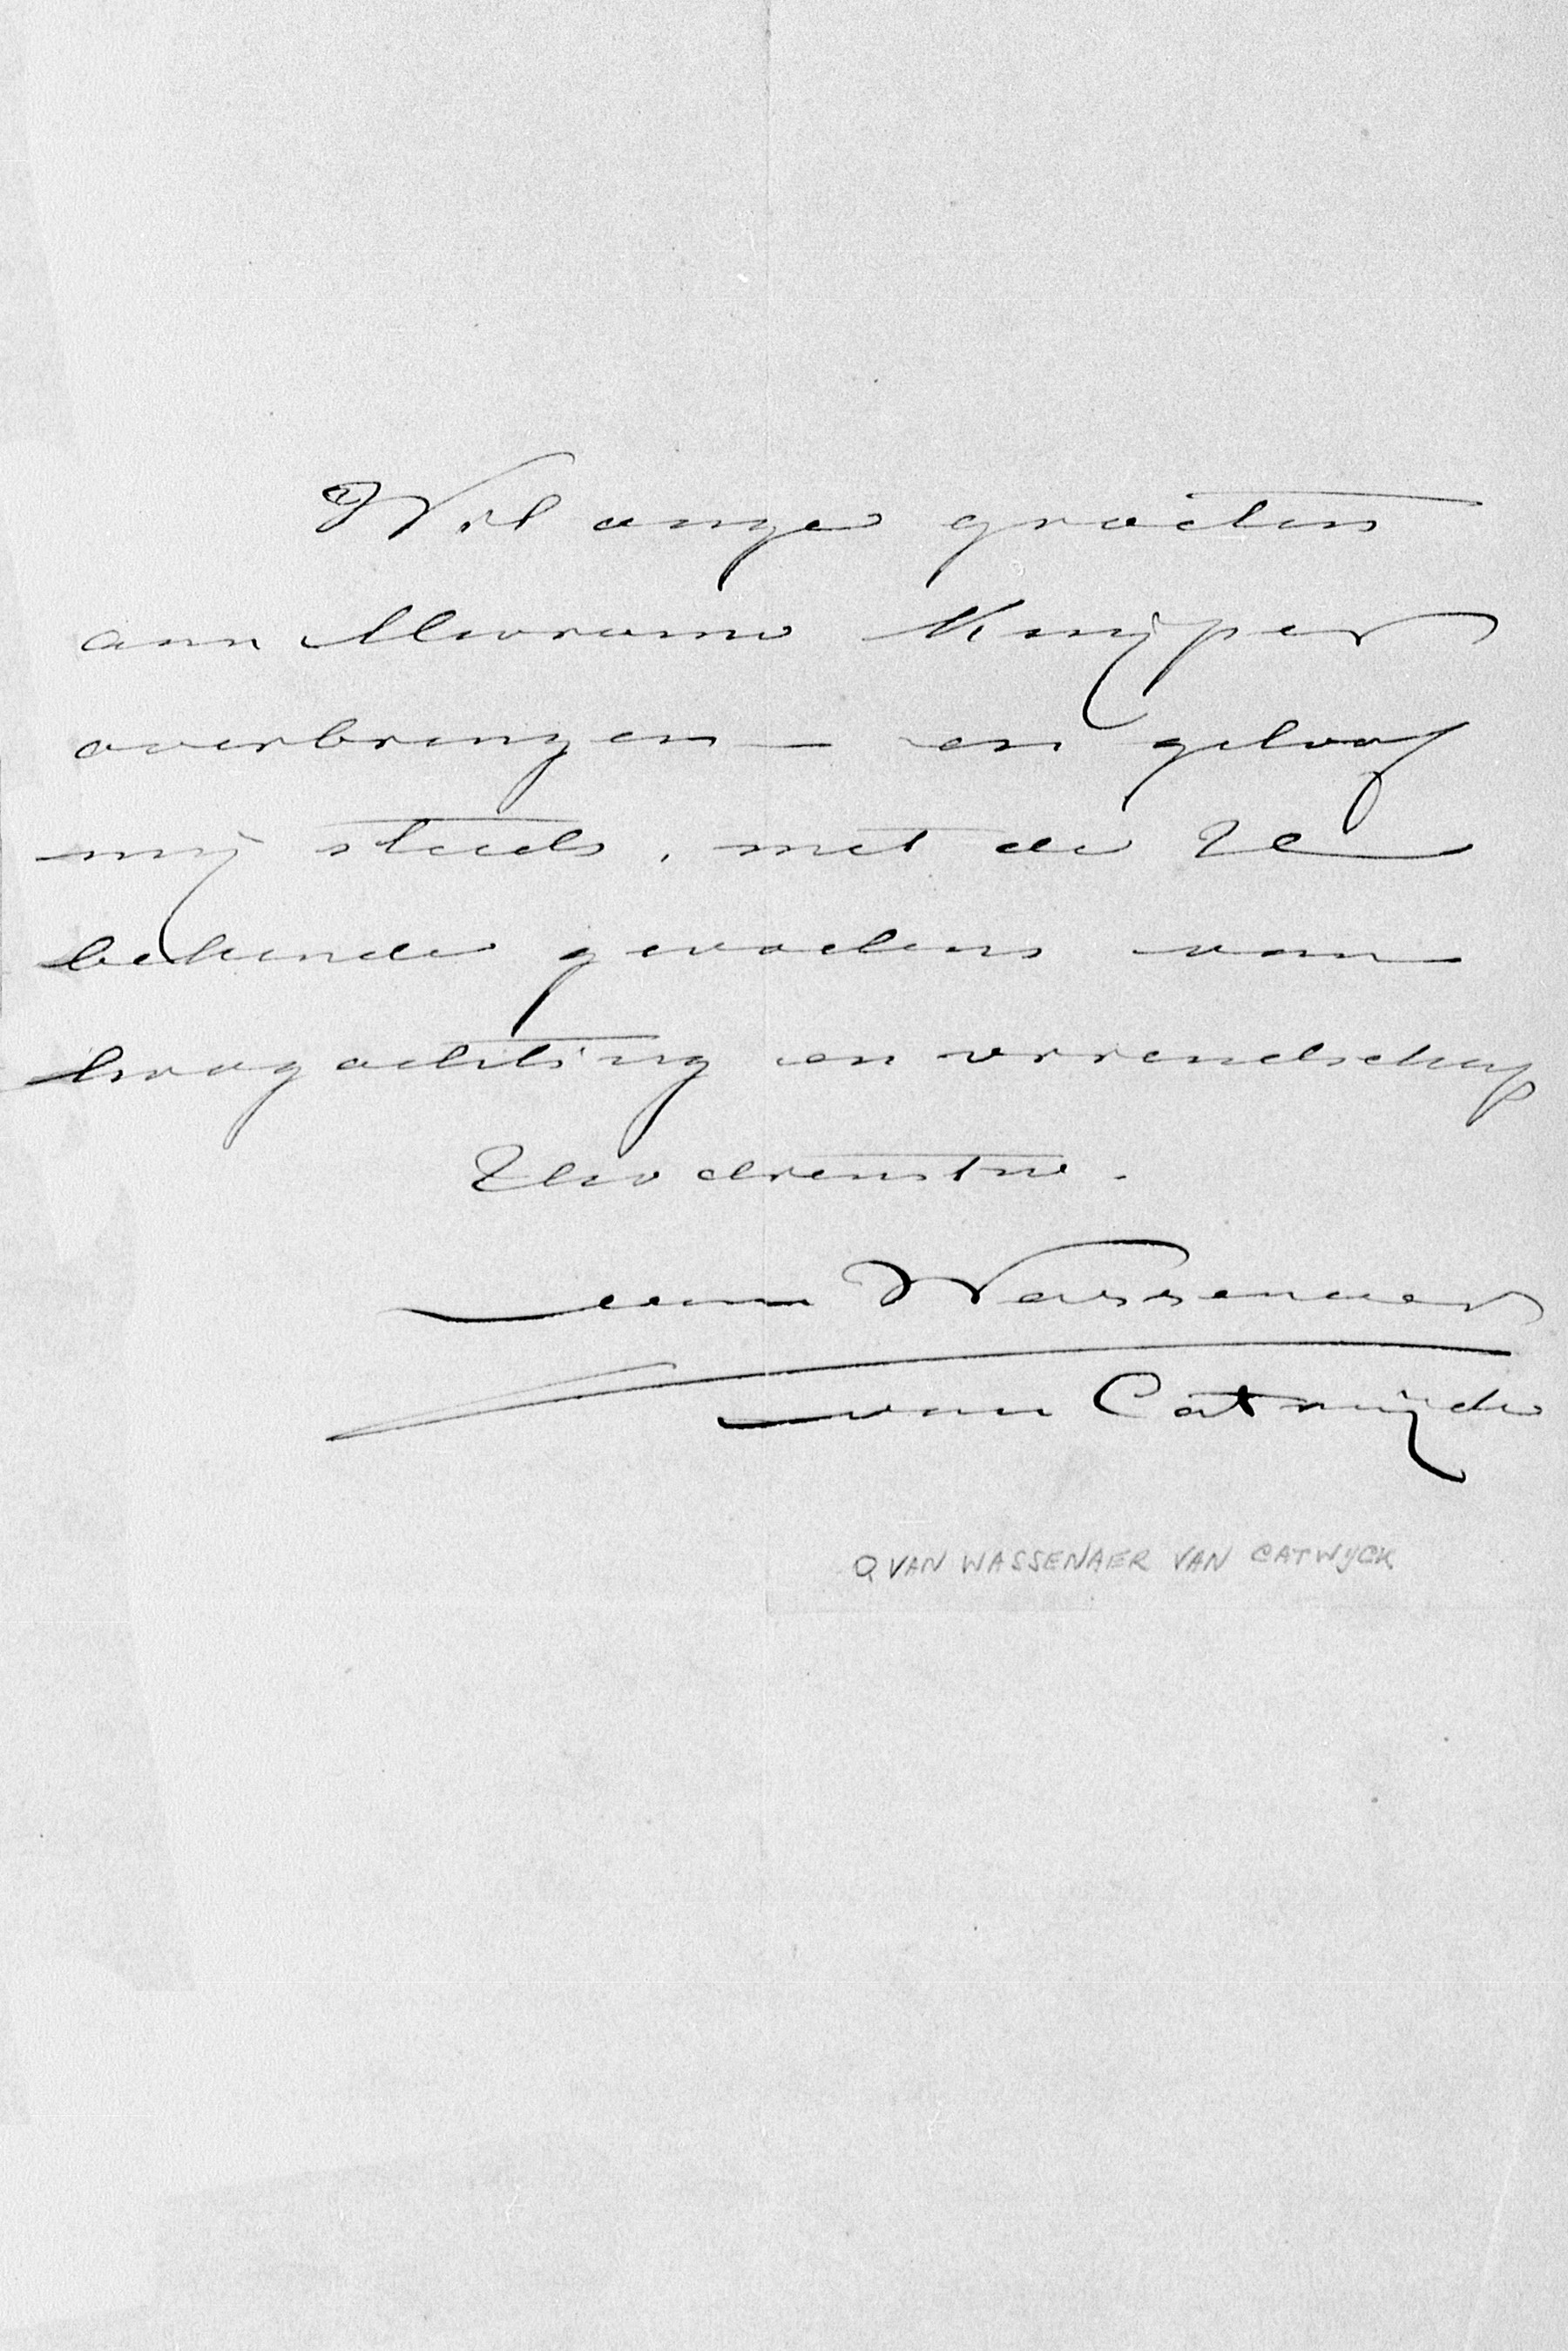 Wil onze groeten
aan Mevrouw Kuijper
overbrengen – en geloof
mij steeds, met de U
bekende gevoelens van
hoogachting en vriendschap
Uw dienstw.
van Wassenaer
van Catwijck
Q VAN WASSENAER VAN CATWIJCK